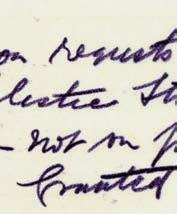 on requests
lestee St
- not on p
Granted